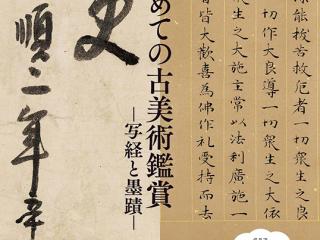 能拔苦救厄者一切衆生之良
切作大良導一切衆生之大依
生之大施主常以法利廣施一
皆大歡喜為佛作禮受持而去
めての古美術鑑賞
―写経と墨蹟―
順二年辛